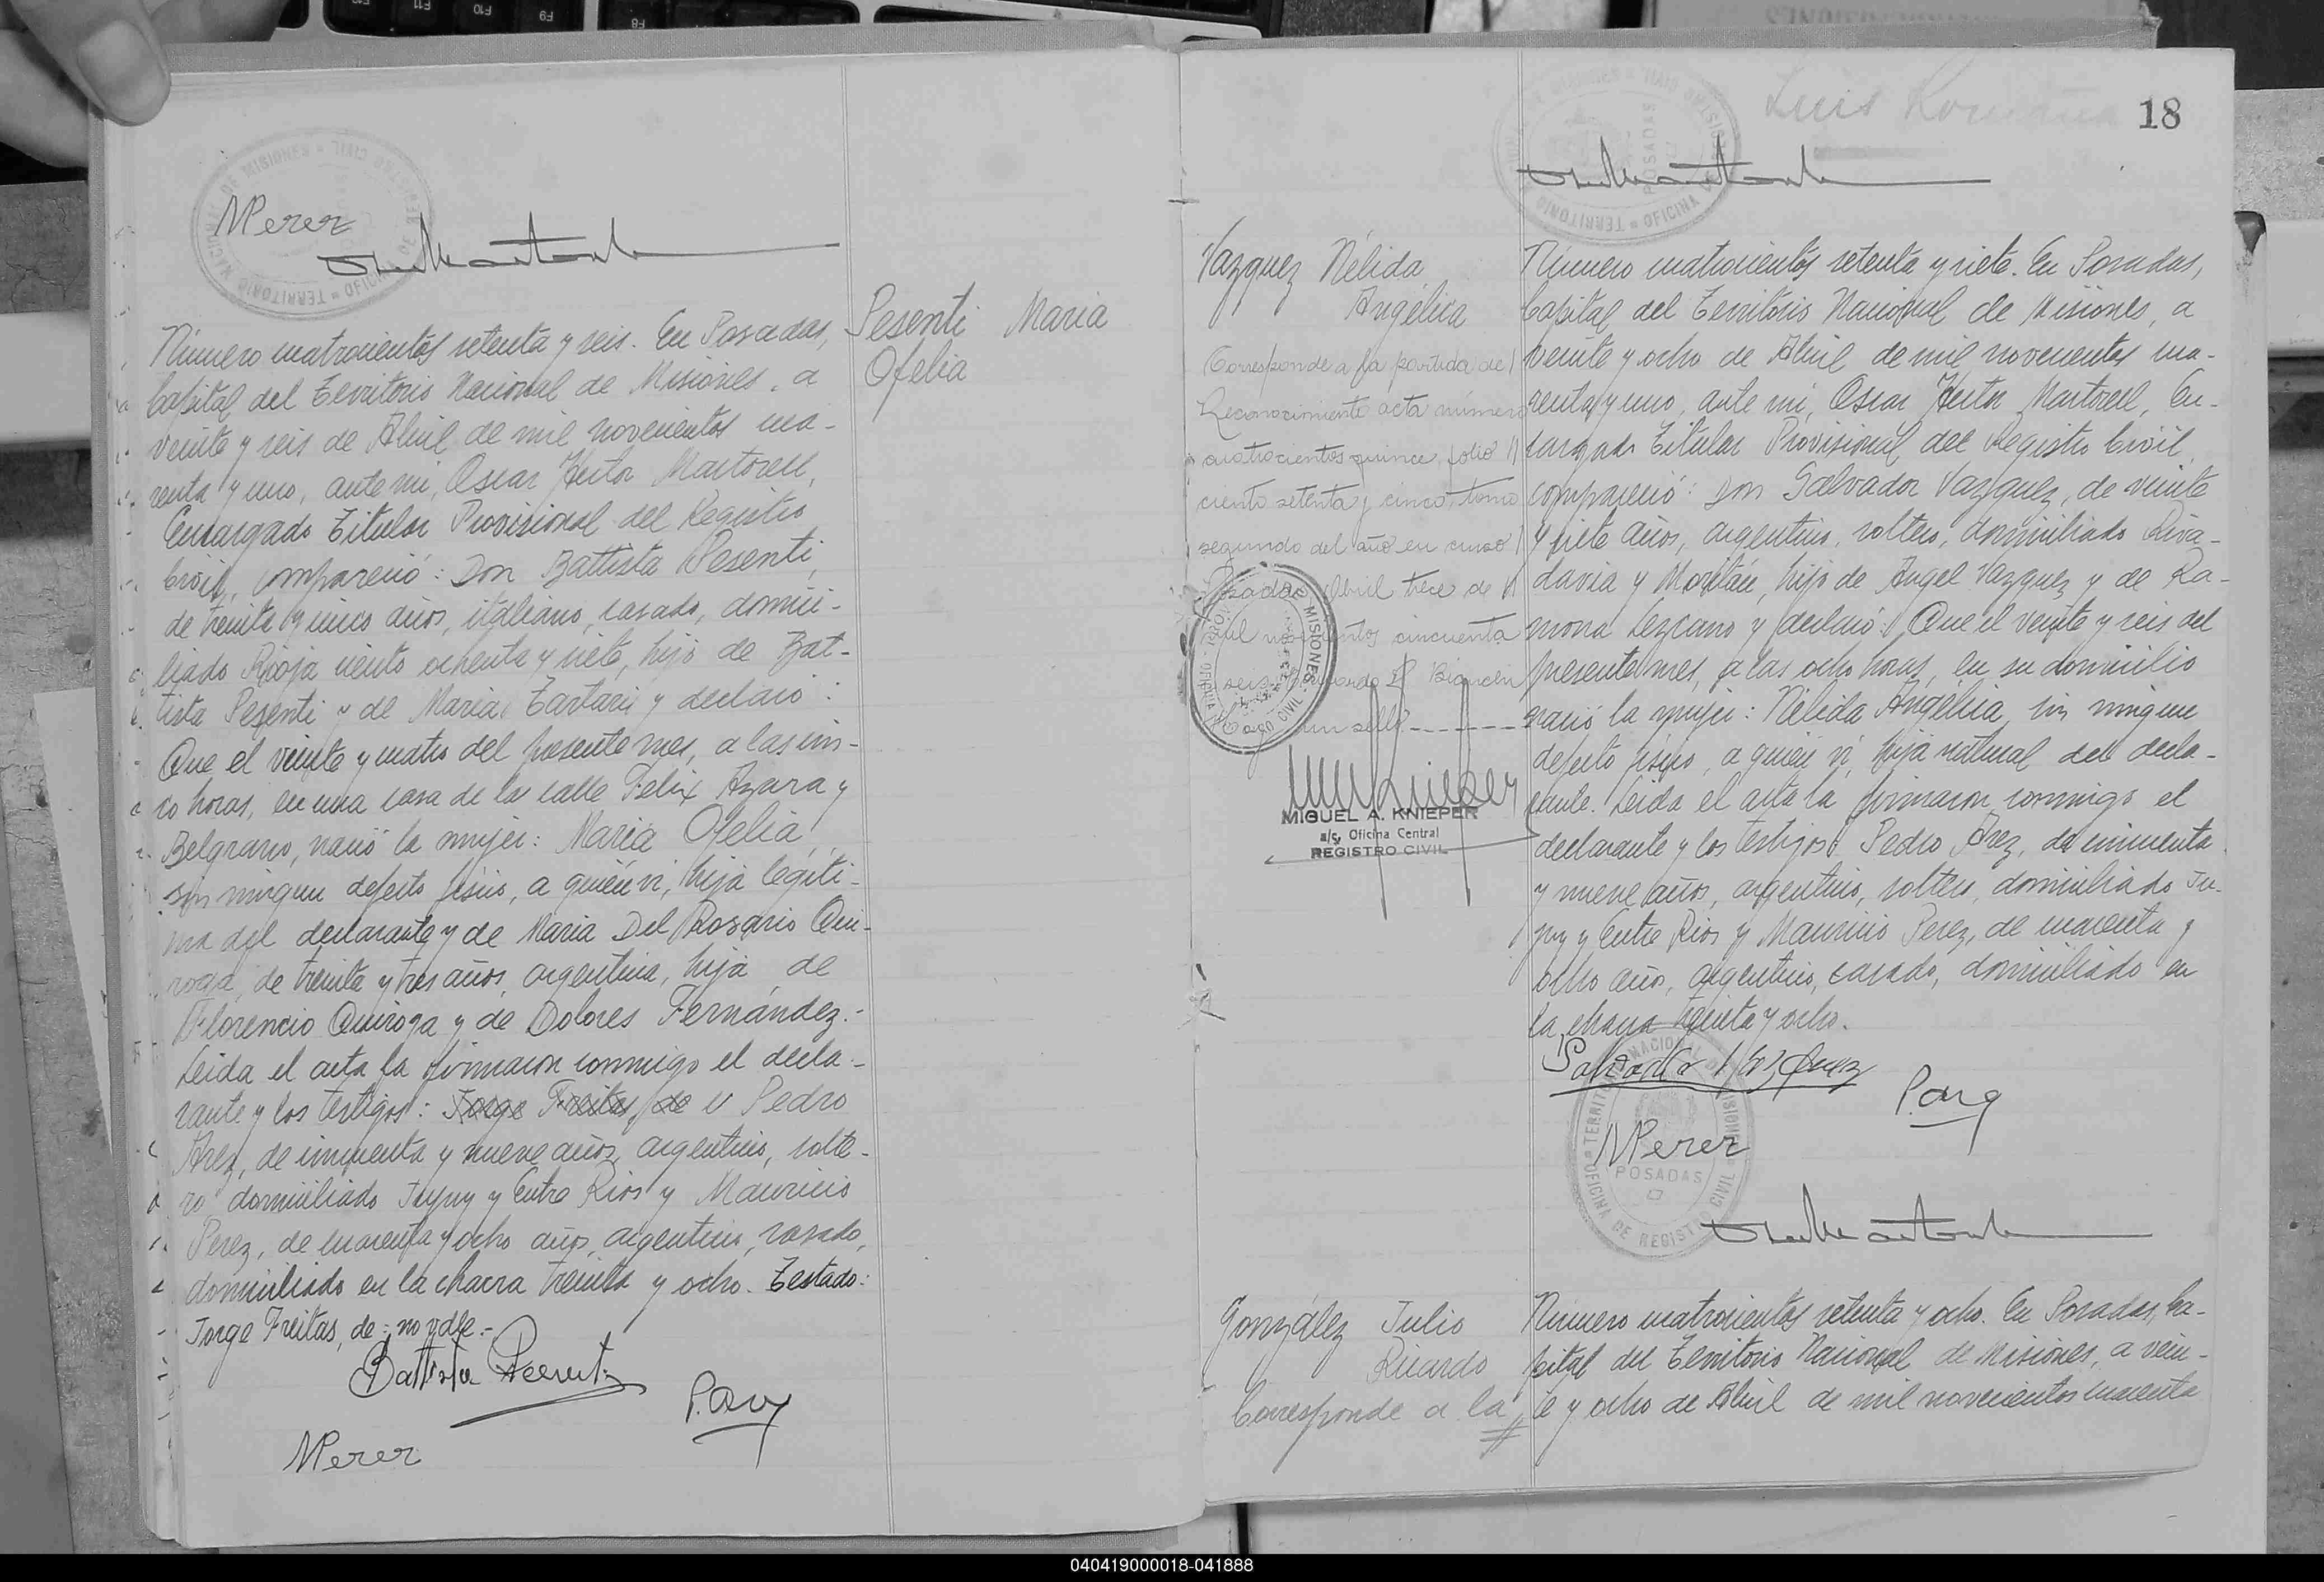 MPerez
Pesenti Maria
Ofelia
Número cuatrocientos setenta y seis. En Posadas,
Capital del Territorio Nacional de Misiones, a
veinte y seis de Abril de mil novecientos cua-
renta y uno, ante mi, Oscar Hector Martorell,
Encargado Titular Provisional del Registro
Civil, compareció: Don Battista Pesenti,
de treinta y cinco años, italiano, casado, domici-
liado Rioja ciento ochenta y siete, hijo de Bat-
tista Pesenti y de Maria Tartari y declaró:
Que el veinte y cuatro del presente mes, a las cin-
co horas, en una casa de la calle Felix Azara y
Belgrano, nació la mujer: Maria Ofelia,
sin ningun defecto fisico, a quién vi, hija legiti-
ma del declarante y de Maria Del Rosario Qui-
roga, de treinta y tres años, argentina, hija de
Florencio Quiroga y de Dolores Fernández.-
Leida el acta la firmaron conmigo el decla-
rante y los testigos: Jorge Freitas, de Pedro
Arez, de cincuenta y nueve años, argentino, solte-
ro domiciliado Jujuy y Entre Rios y Mauricio
Perez, de cuarenta y ocho años, argentino, casado,
domiciliado en la chacra treinta y ocho. Testado:
Jorge Freitas, de: no vale.-
Battista Pesenti
P. Arez
MPerez
18
Luis
Vazquez Nélida
Angélica
(Corresponde a la partida de
Reconocimiento acta número
cuatrocientos quince, folio
ciento setenta y cinco, tomo
segundo del año en curso
Posadas Abril trece de
mil novecientos cincuenta
y seis
un sello
MIGUEL A. KNIEPER
a/c. Oficina Central
REGISTRO CIVIL
Número cuatrocientos setenta y siete. En Posadas,
Capital del Territorio Nacional de Misiones, a
veinte y ocho de Abril de mil novecientos cua-
renta y uno, ante mi, Oscar Hector Martorell, En-
cargado Titular Provisional del Registro Civil,
compareció: Don Salvador Vazquez, de veinte
y siete años, argentino, soltero, domiciliado Riva-
davia y Moritán, hijo de Angel Vazquez y de Ra-
mona Lezcano y declaró: Que el veinte y seis del
presente mes, a las ocho horas, en su domicilio
nació la mujer: Nélida Angélica, sin ningun
defecto fisico, a quién vi, hija natural del decla-
rante. Leida el acta la firmaron conmigo el
declarante y los testigos Pedro Arez, de cincuenta
y nueve años, argentino, soltero, domiciliado Ju-
juy y Entre Rios y Mauricio Perez, de cuarenta y
ocho años, argentino, casado, domiciliado en
la chacra treinta y ocho.
Salvador Vazquez
P. Arez
MPerez
POSADAS
González Julio
Ricardo
Corresponde a la
Número cuatrocientos setenta y ocho. En Posadas, Ca-
pital del Territorio Nacional de Misiones, a vein-
te y ocho de Abril de mil novecientos cuarenta
040419000018-041888